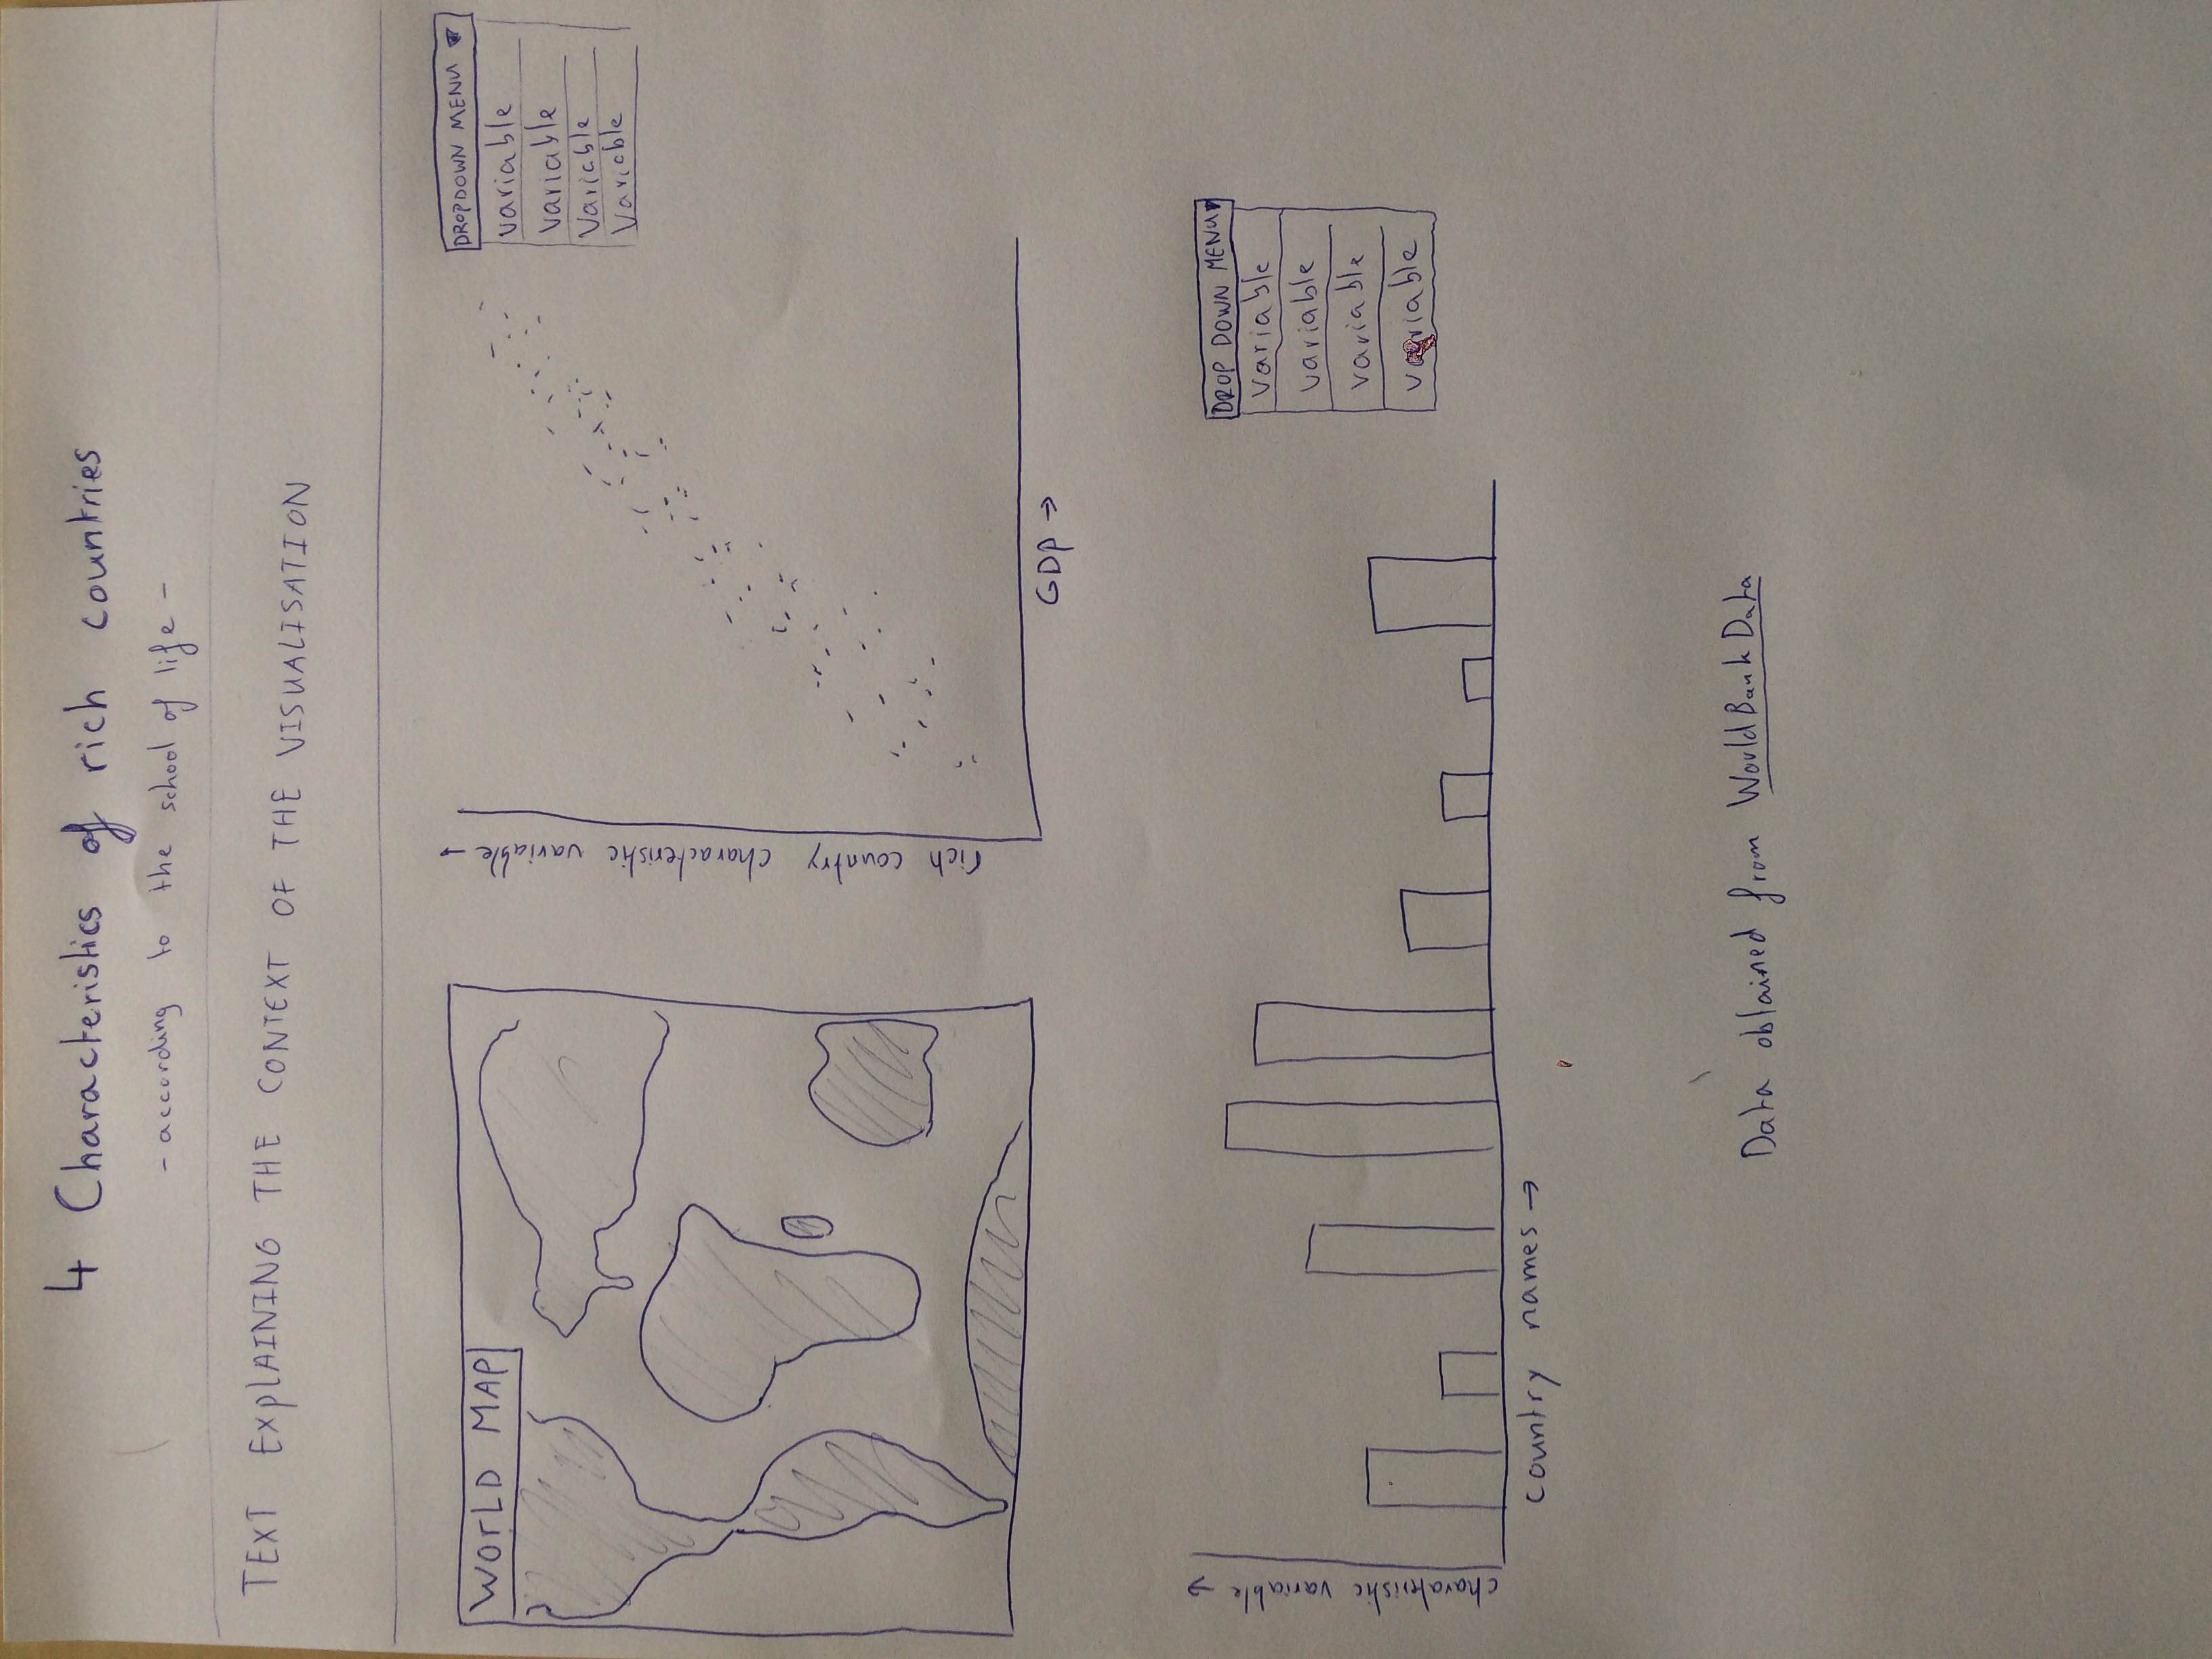 4 Characteristics of rich countries
- according to the school of life -
TEXT EXPLAINING THE CONTEXT OF THE VISUALISATION
WORLD MAP
rich country characteristic variable →
GDP →
DROPDOWN MENU ▼
variable
variable
Variable
Variable
charateristic variable →
country names →
DROP DOWN MENU ▼
variable
variable
variable
variable
Data obtained from WorldBankData